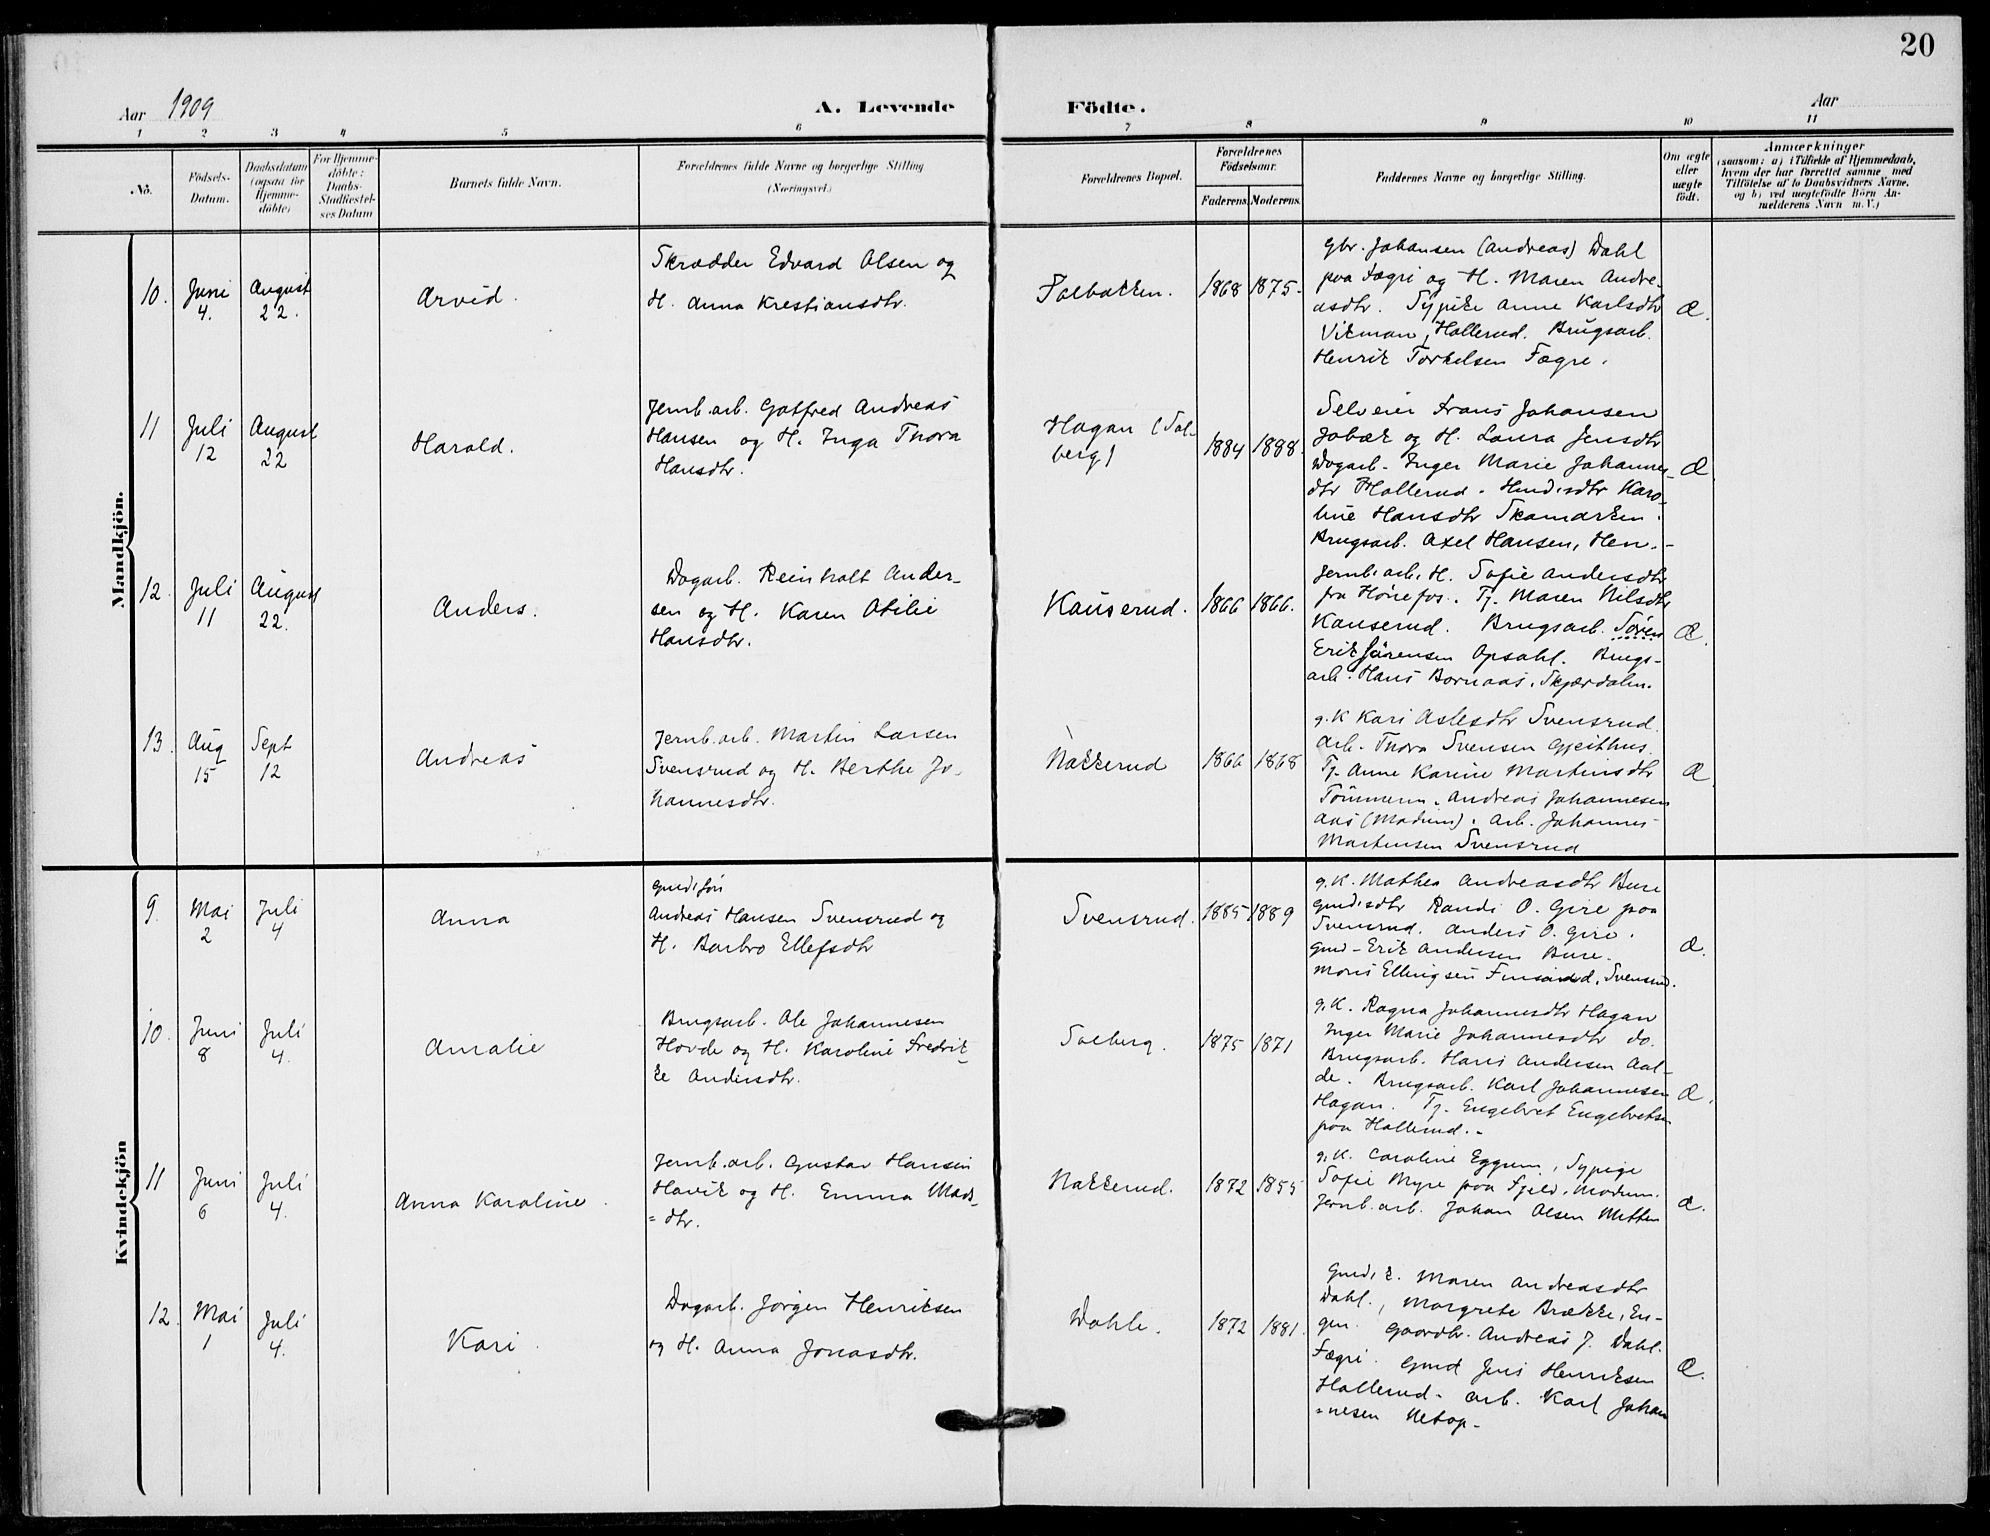 20
Aar 1909
A. Levende
Födte.
Aar
1 2 3 4 5 6 7 8 9 10 11
No.
Födsels-Datum.
Daabsdatum (ogsaa for Hjemme-döbte)
For Hjemme-döbte: Daabs-Stadfestel-ses Datum
Barnets fulde Navn.
Forældrenes fulde Navne og borgerlige Stilling
(Næringsvei.)
Forældrenes Bopæl.
Forældrenes Födselsaar.
Faderens. Moderens.
Faddernes Navne og borgerlige Stilling.
Om ægte eller uægte födt.
Anmærkninger
(saasom: a) i Tilfælde af Hjemmedaab,
hvem der har forrettet samme med
Tilföielse af to Daabsvidners Navne,
og b) ved uægtefödte Börn An-
melderens Navn m.V.)
Mandkjön.
10. Juni 4. August 22.
Arvid.
Skrædder Edvard Olsen og
H. Anna Krestiansdtr.
Solbakken. 1868 1875.
Gbr. Johansen (Andreas) Dahl
paa Fægri og H. Maren Andre-
asdtr. Sypike Anne Karlsdtr
Vikman, Hollerud. Brugsarb.
Henrik Torkelsen Fægre.
Æ.
11 Juli 12 August 22
Harald.
Jernb.arb. Gotfred Andreas
Hansen og H. Inga Thora
Hansdtr.
Hagan (Sol-
berg) 1884 1888.
Selveier Frans Johansen
Jobæk og H. Laura Jensdtr
Dagarb. Inger Marie Johannes-
dtr Hollerud. Husm.dtr Karo-
line Hansdtr Skamarken.
Brugsarb. Axel Hansen, Hen.-
Æ.
12. Juli 11 August 22.
Anders.
Dagarb. Reinholt Ander-
sen og H. Karen Otilie
Hansdtr.
Kauserud. 1866 1866.
Jernb.arb. H. Sofie Andersdtr
fra Hönefos. Tj. Maren Nilsdtr
Kauserud. Brugsarb. Sören
Erik Sörensen Opsahl. Brugs-
arb. Hans Bornaas, Skjærdalen.
Æ.
13. Aug 15 Sept 12
Andreas
Jernb.arb. Martin Larsen
Svensrud og H. Berthe Jo-
hannesdtr.
Nakkerud 1866 1868
g.K Kari Aslesdtr Svensrud.
Arb. Thora Svensen Gjeithus.
Tj. Anne Karine Martinsdtr
Tömmerm. Andreas Johannesen
Aas (Modum). Arb. Johannes
Martinsen Svensrud
Æ
Kvindekjön
9. Mai 2 Juli 4
Anna
Gmds.sön
Andreas Hansen Svensrud og
H. Barbro Ellefsdtr
Svensrud. 1885 1889
g.K. Mathea Andreasdtr Bure
Gmdsdtr Randi O. Gire paa
Svensrud. Anders O. Gire.
Gmd - Erik Andersen Bure.
Mons Ellingsen Finsand, Svensrud.
Æ.
10. Juni 8 Juli 4.
Amalie
Brugsarb. Ole Johannesen
Hovde og H. Karoline Fredrik-
ke Andersdtr.
Solberg. 1875 1871
g.K. Ragna Johannesdtr Hagan
Inger Marie Johannesdtr do.
Brugsarb. Hans Andersen Aal-
de. Brugsarb. Karl Johannesen
Hagan. Tj. Engebret Engebretsen
paa Hollerud.-
Æ.
11 Juni 6 Juli 4.
Anna Karoline.
Jernb.arb. Gustav Hansen
Havik og H. Emma Mads-
=dtr.
Nakkerud. 1872 1855
g.K. Caroline Eggum, Sypige
Sofie Myre paa Fjeld, Modum.
Jernb.arb. Johan Olsen Metten
Æ.
12. Mai 1 Juli 4.
Kari.
Dagarb. Jörgen Henriksen
og H. Anna Jonasdtr.
Dahle. 1872 1881.
Gmd.k. Maren Andreasdtr
Dahl., Margrete Brække, En-
gen. Gaardbr. Andreas J. Dahl.
Fægri. Gmd Jens Henriksen
Hollerud. Arb. Karl Johan
=nesen Netop.-
Æ.